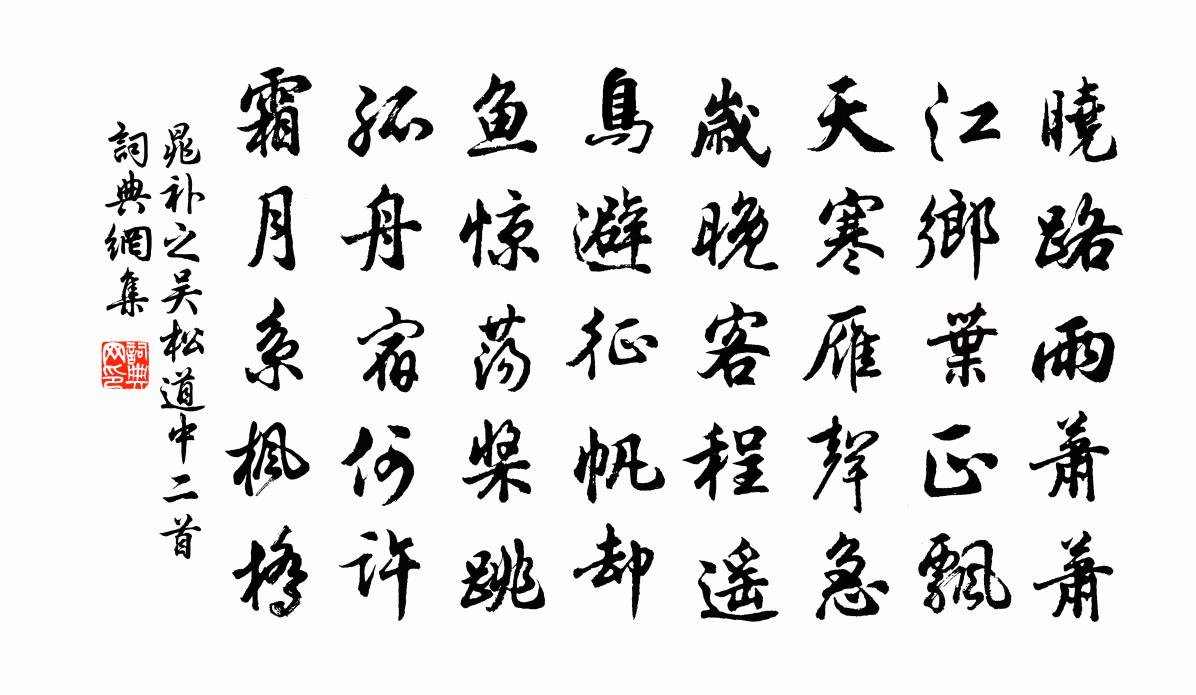 曉路雨蕭蕭
江鄉葉正飄
天寒雁聲急
歲晚客程遥
鳥避征帆却
鱼惊荡槳跳
孤舟宿何許
霜月系楓橋
晁补之吴松道中二首
詞典網集
詞典网印